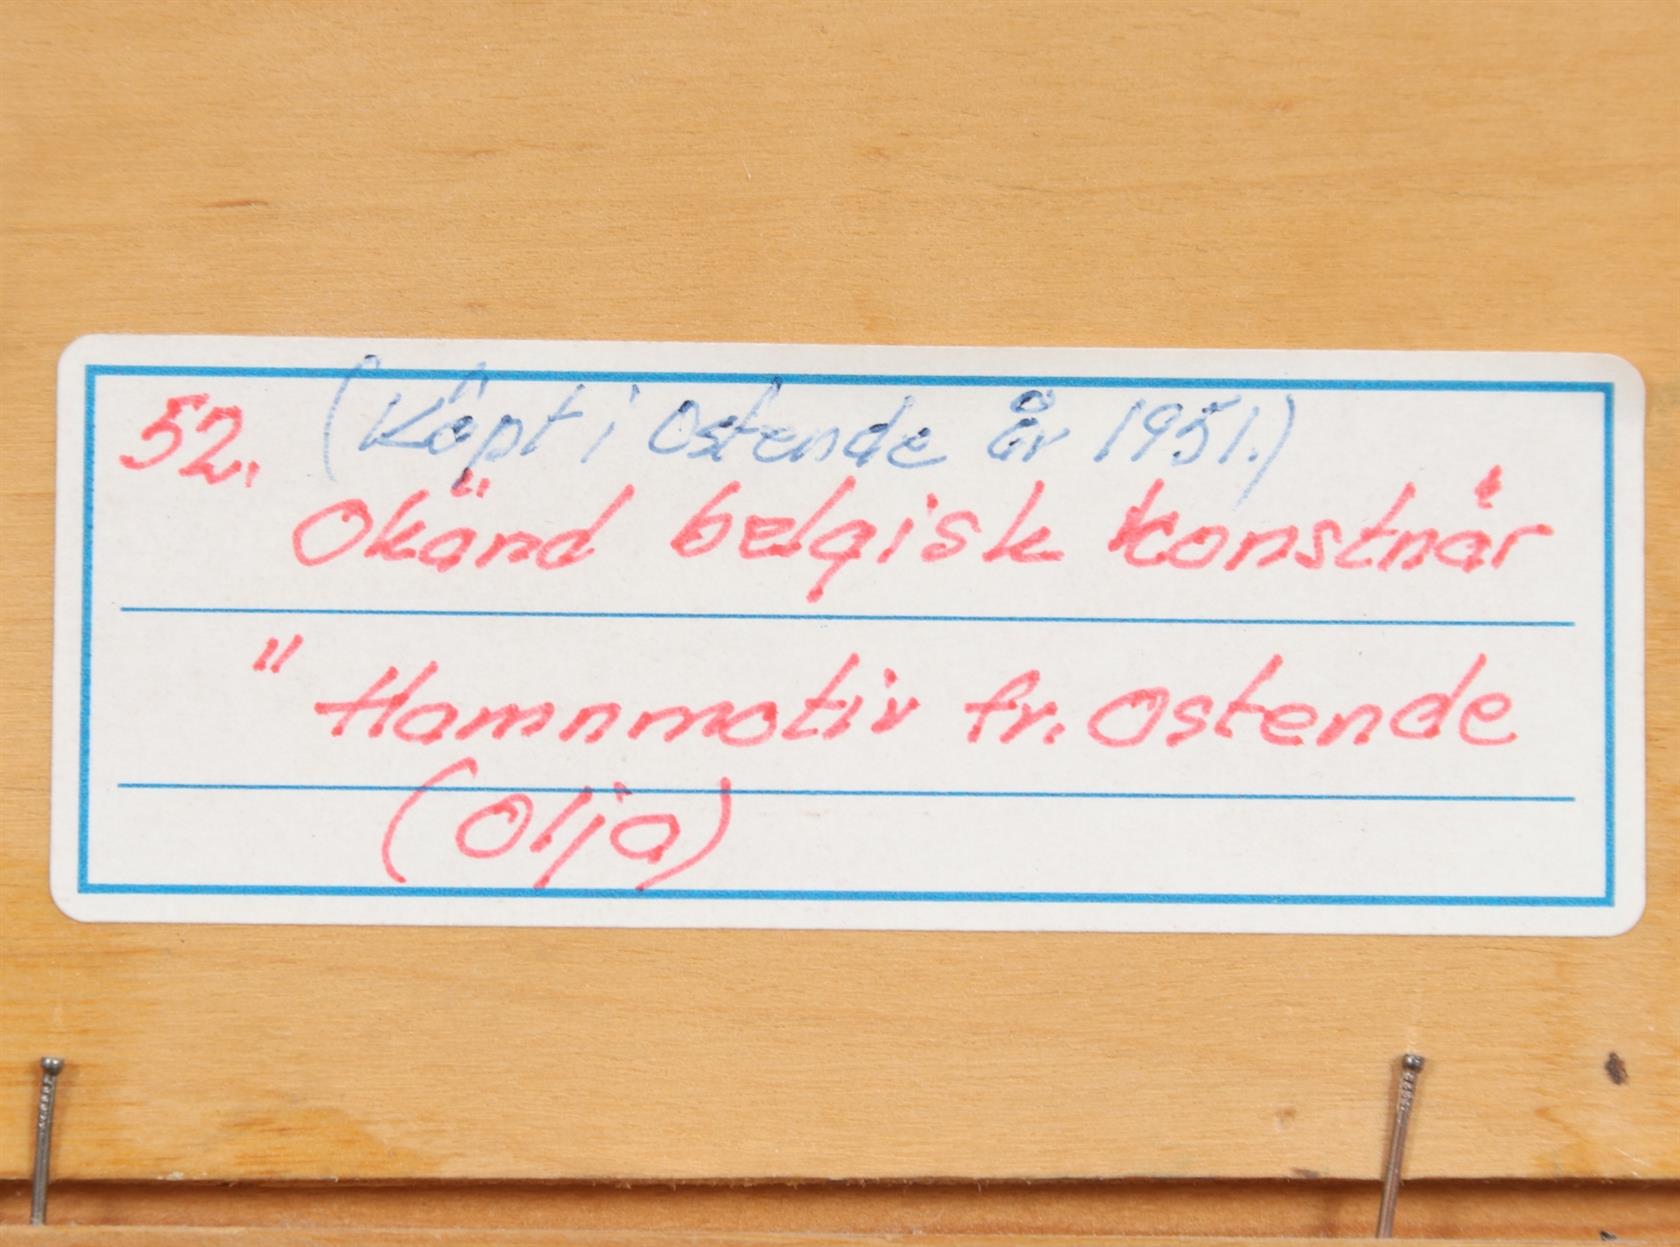 52. (Köpt i Ostende år 1951.)
Okänd belgisk konstnär
" Hamnmotiv fr. Ostende
(Olja)